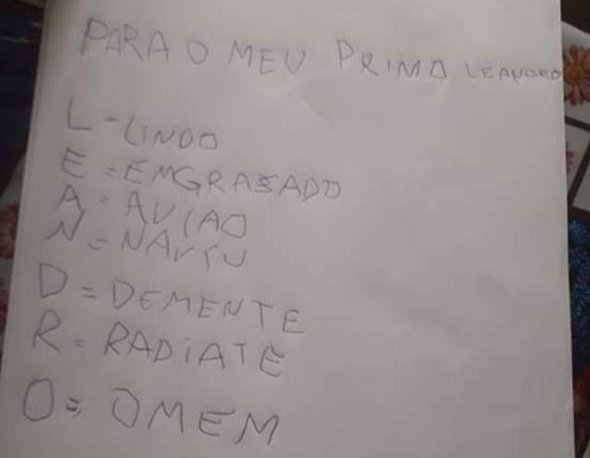 PARA O MEU PRIMO LEANDRO
L-LINDO
E=EMGRASADO
A=AVIAO
N=NAVIU
D=DEMENTE
R=RADIATE
O=OMEM